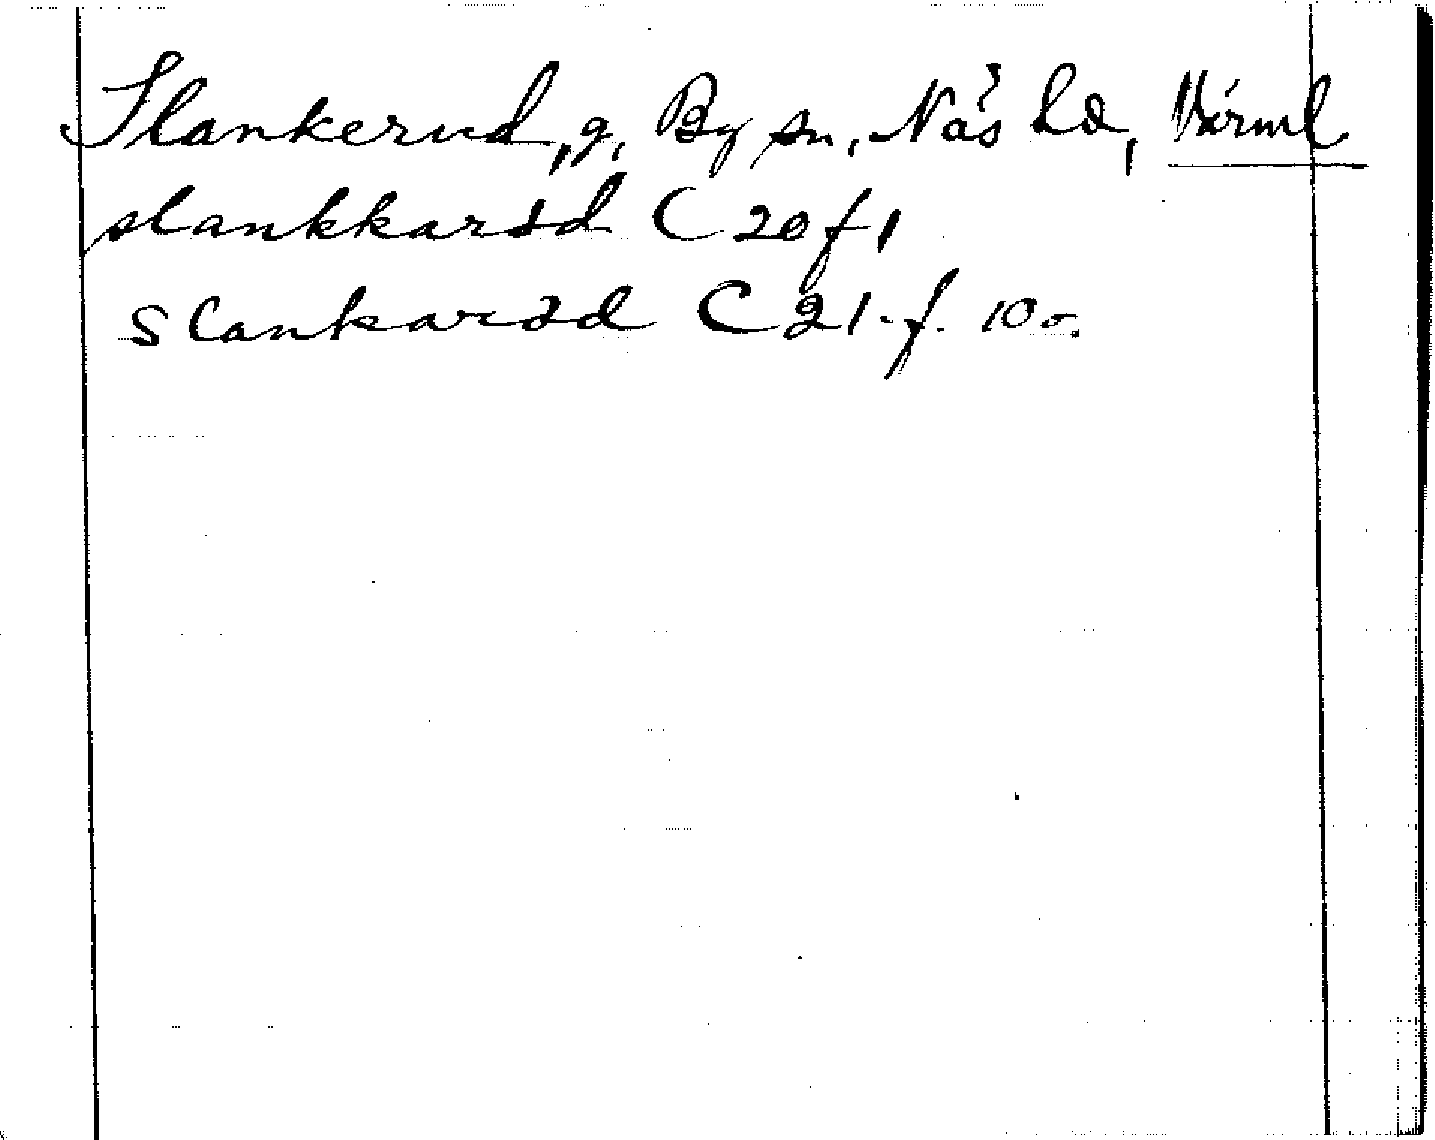 Slankerud, g, By sn, Näs hd, Värml
slankkarsd C 20 f 1
slankarsd C 21. f. 10 v.